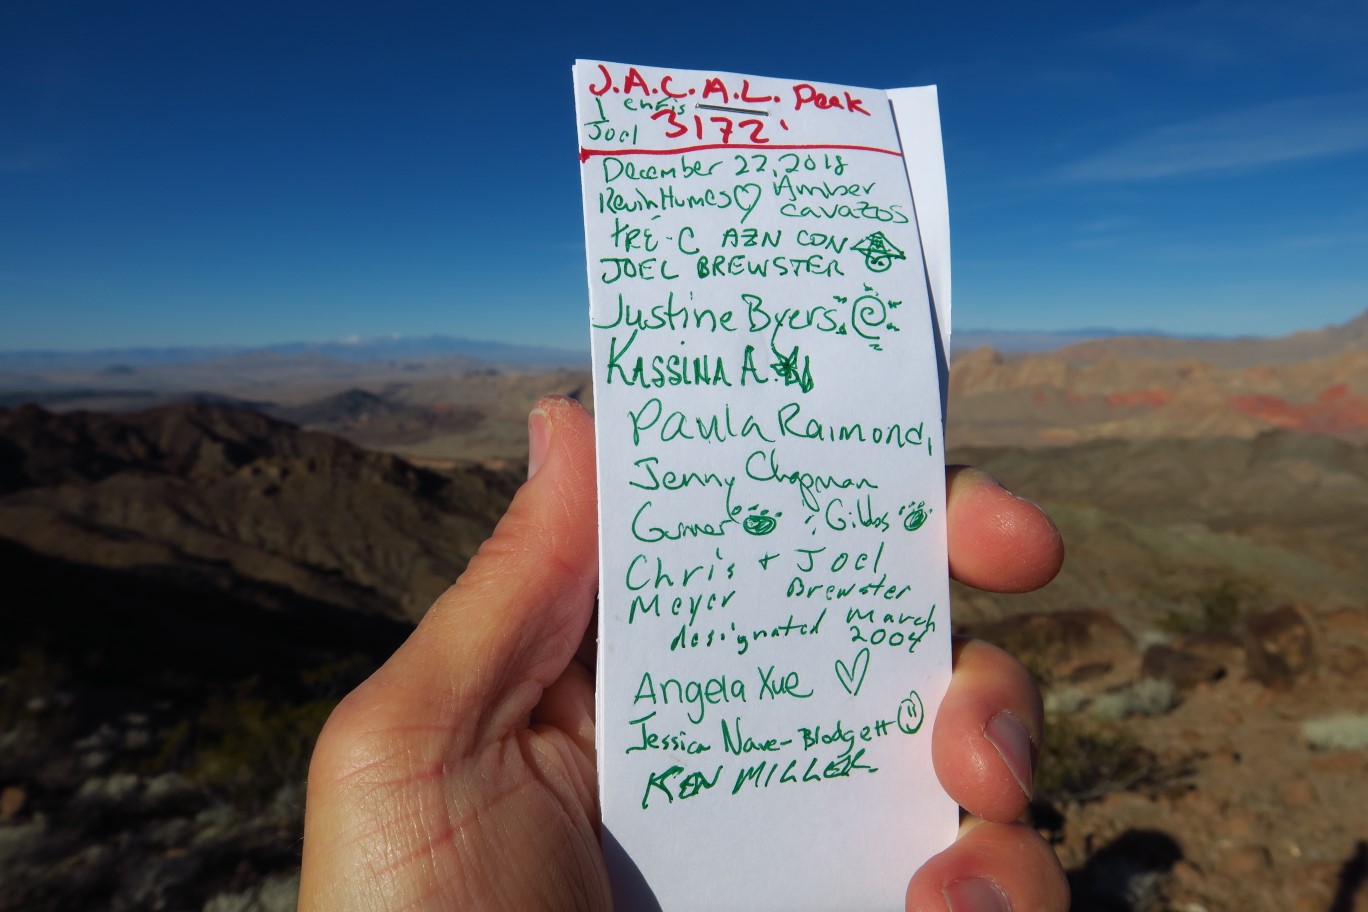 J.A.C.A.L. Peak
chris
Joel 3172'
December 22, 2018
Kevin Humes♡ Amber
Cavazos
TRE-C AZN CON
JOEL BREWSTER
Justine Byers
KASSINA A.
Paula Raimondi
Jenny Chapman
Gunner Gibbs
Chris + Joel
Meyer Brewster
designated March
2004
Angela Xue ♡
Jessica Nave-Blodgett
KEN MILLER